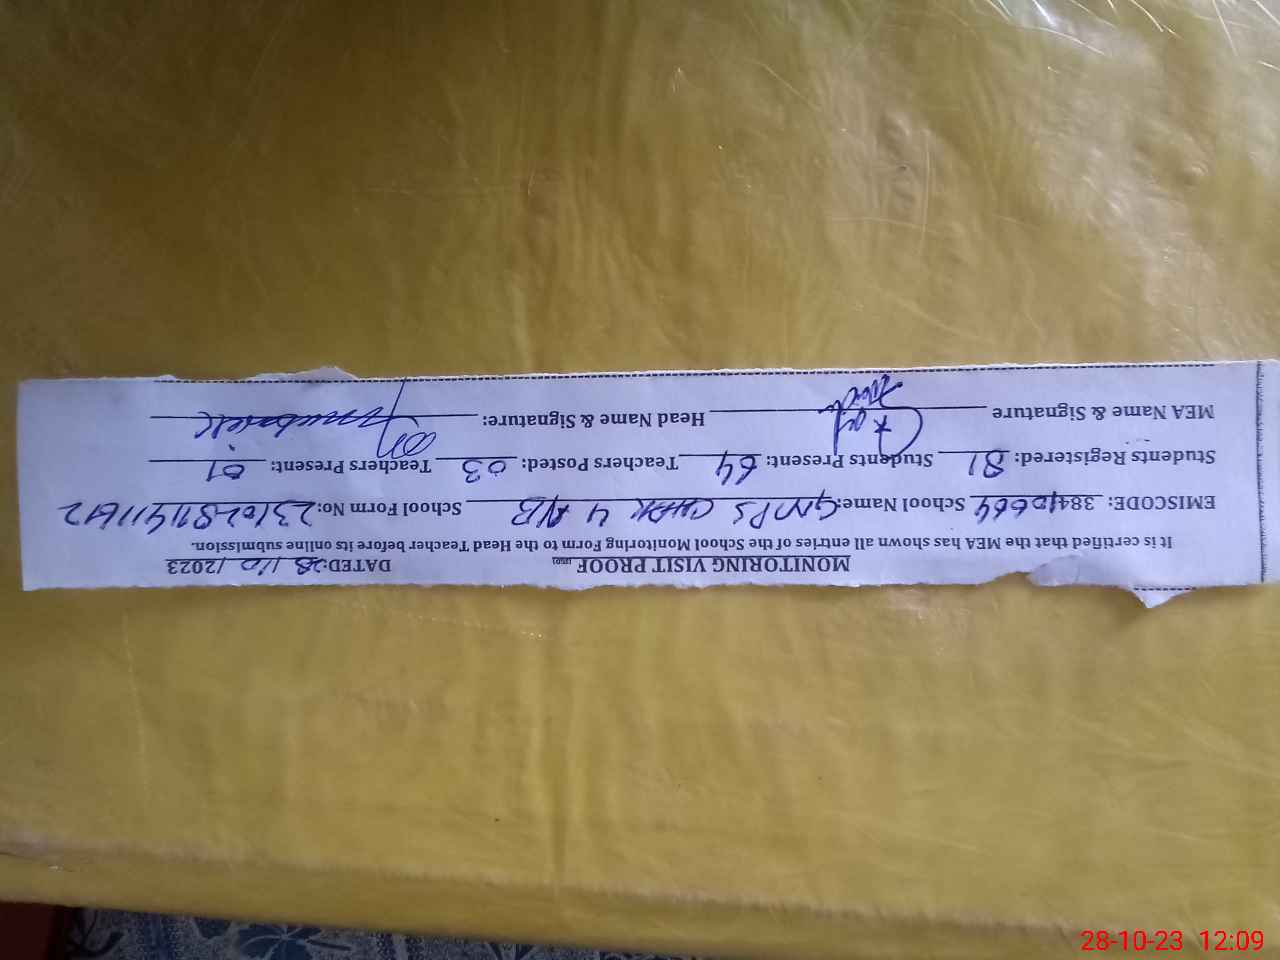 MONITORING VISIT PROOF DATED: 28/10/2023
It is certified that the MEA has shown all entries of the School Monitoring Form to the Head Teacher before its online submission.
EMISCODE: 38410664 School Name: GMPS CHAK 4 NB School Form No:
Students Registered: 81 Students Present: 64 Teachers Posted: 03 Teachers Present: 01
MEA Name & Signature Head Name & Signature:
28-10-23 12:09